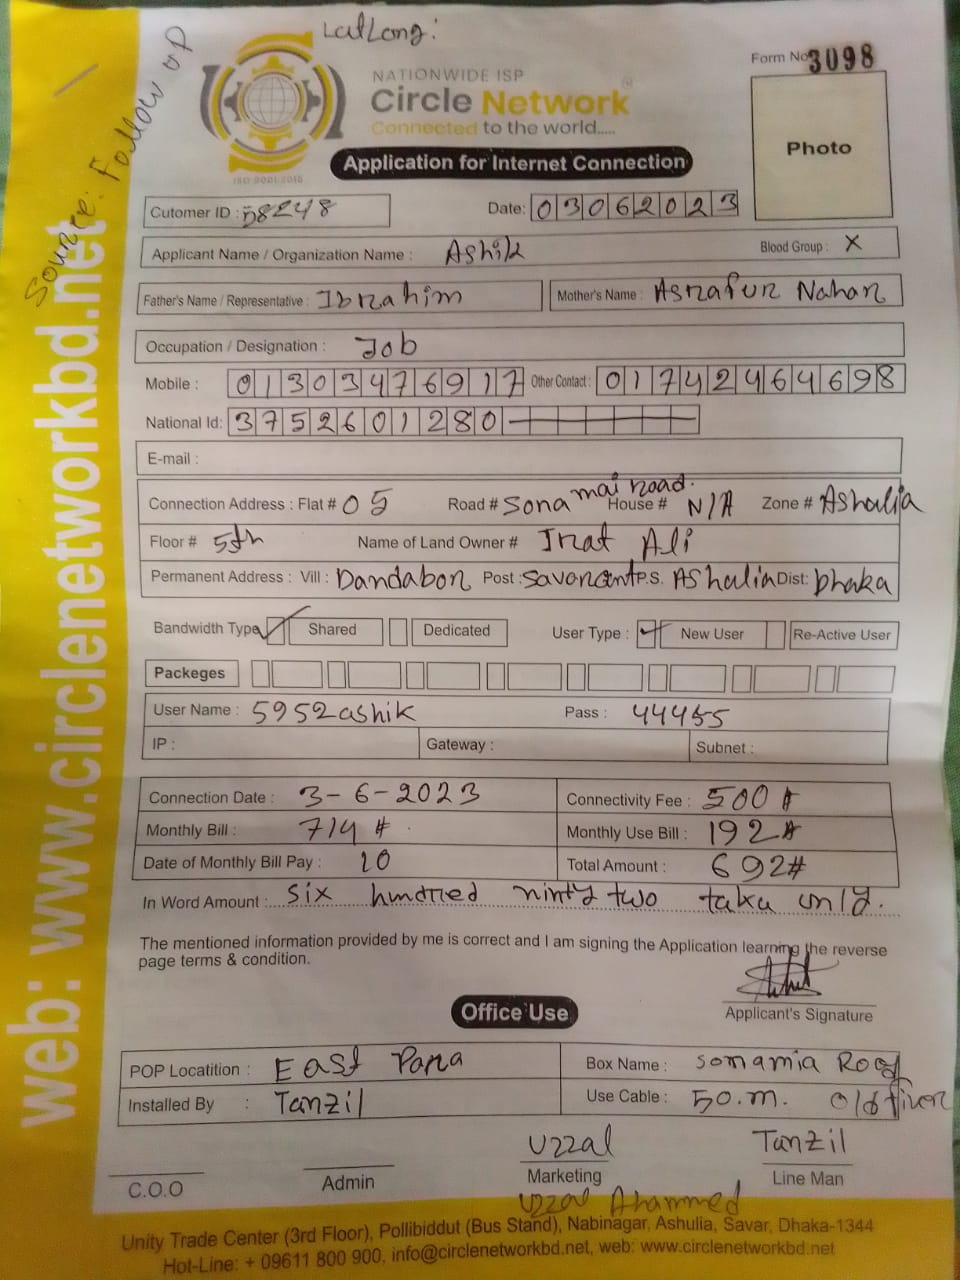 LatLong:
Source: Follow up
Form No 3098
NATIONWIDE ISP
Circle Network
Connected to the world.....
ISO 9001:2015
Photo
Application for Internet Connection
Cutomer ID : 58248 Date: 03062023
Applicant Name / Organization Name : Ashik Blood Group : X
Father's Name / Representative : Ibrahim Mother's Name : Asrafun Nahar
Occupation / Designation : Job
Mobile : 01303476917 Other Contact : 01742464698
National Id: 3752601280
E-mail :
Connection Address : Flat # 05 Road # Sona mai road. House # N/A Zone # Ashalia
Floor # 5th Name of Land Owner # Inat Ali
Permanent Address : Vill : Dandabon Post : Savarcant P.S. Ashalia Dist: Dhaka
Bandwidth Type Shared Dedicated User Type : New User Re-Active User
Packeges
User Name : 5952ashik Pass : 444455
IP : Gateway : Subnet :
Connection Date : 3-6-2023 Connectivity Fee : 500#
Monthly Bill : 714 # Monthly Use Bill : 192#
Date of Monthly Bill Pay : 10 Total Amount : 692#
In Word Amount : six hundred ninty two taka only.
The mentioned information provided by me is correct and I am signing the Application learning the reverse
page terms & condition.
Applicant's Signature
Office Use
POP Locatition : East Para Box Name : Sonamia Road
Installed By : Tanzil Use Cable : 50.m. old fiver
Uzzal Tanzil
C.O.O Admin Marketing Line Man
Uzzal Ahammed
Unity Trade Center (3rd Floor), Pollibiddut (Bus Stand), Nabinagar, Ashulia, Savar, Dhaka-1344
Hot-Line: + 09611 800 900, info@circlenetworkbd.net, web: www.circlenetworkbd.net
web: www.circlenetworkbd.net